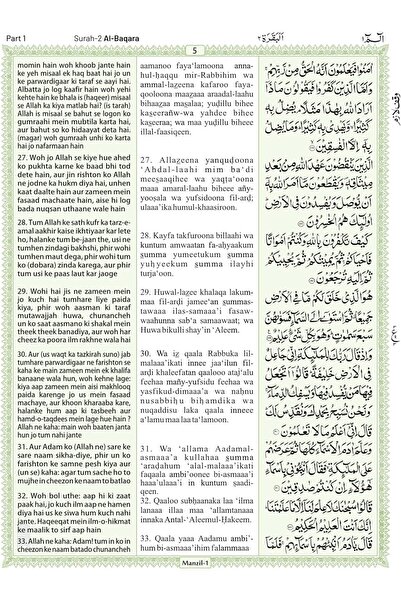 Part 1
Surah-2 Al-Baqara
البقرة ٢
الٓمّ ١
5
momin hain woh khoob jante hain
ke yeh misaal ek haq baat hai jo un
ke parwardigaar ki taraf se aayi hai.
Albatta jo log kaafir hain woh yehi
kehte hain ke bhala is (haqeer) misaal
se Allah ka kiya matlab hai? (is tarah)
Allah is misaal se bahut se logon ko
gumraahi mein mubtila karta hai,
aur bahut so ko hidaayat deta hai.
(magar) woh gumraah unhi ko karta
hai jo nafarmaan hain
27. Woh jo Allah se kiye hue ahed
ko pukhta karne ke baad bhi tod
dete hain, aur jin rishton ko Allah
ne jodne ka hukm diya hai, unhen
kaat daalte hain aur zameen mein
fasaad machaate hain, aise hi log
bada nuqsan uthaane wale hain
28. Tum Allah ke sath kufr ka tarz-e-
amal aakhir kaise ikhtiyaar kar lete
ho, halanke tum be-jaan the, usi ne
tumhen zindagi bakhshi, phir wohi
tumhen maut dega, phir wohi tum
ko (dobara) zinda karega, aur phir
tum usi ke paas laut kar jaoge
29. Wohi hai jis ne zameen mein
jo kuch hai tumhare liye paida
kiya, phir woh aasman ki taraf
mutawajjah huwa, chunanche
un ko saat aasmano ki shakal mein
theek theek banadiya, aur woh har
cheez ka poora ilm rakhne wala hai
30. Aur (us waqt ka tazkirah suno) jab
tumhare parwardigaar ne farishton se
kaha ke main zameen mein ek khalifa
banaane wala hun, woh kehne lage:
kiya aap zameen mein aisi makhlooq
paida karenge jo us mein fasaad
machaye, aur khoon kharaaba kare,
halanke hum aap ki tasbeeh aur
hamd-o-taqdees mein lage hue hain ?
Allah ne kaha: main woh baaten janta
hun jo tum nahi jante
31. Aur Adam ko (Allah ne) sare ke
sare naam sikha-diye, phir un ko
farishton ke samne pesh kiya aur
(un se) kaha: agar tum sache ho to
mujhe in cheezon ke naam to batlao
32. Woh bol uthe: aap hi ki zaat
paak hai, jo kuch ilm aap ne hamen
diya hai us ke siwa hum kuch nahi
jante. Haqeeqat mein ilm-o-hikmat
ke maalik to sirf aap hain
33. Allah ne kaha: Adam! tum in ko in
cheezon ke naam batado chunancheh
aamanoo faya'lamoona anna-
hul-haqqu mir-Rabbihim wa
ammal-lazeena kafaroo faya-
qooloona maazaa araadal-laahu
bihaazaa masalaa; yudillu bihee
kaseeranw-wa yahdee bihee
kaseeraa; wa maa yudillu bihee
illal-faasiqeen.
27. Allazeena yanqudoona
'Ahdal-laahi mim ba'di
meesaaqihee wa yaqta'oona
maaa amaral-laahu biheee any-
yoosala wa yufsidoona fil-ard;
ulaaa'ika humul-khaasiroon.
28. Kayfa takfuroona billaahi wa
kuntum amwaatan fa-ahyaakum
summa yumeetukum summa
yuhyeekum summa ilayhi
turja'oon.
29. Huwal-lazee khalaqa lakum-
maa fil-ardi jamee'an summas-
tawaaa ilas-samaaa'i fasaw-
waahunna sab'a samaawaat; wa
Huwa bikulli shay'in 'Aleem.
30. Wa iz qaala Rabbuka lil-
malaaa'ikati innee jaa'ilun fil-
ardi khaleefatan qaalooo ataj'alu
feehaa mañy-yufsidu feehaa wa
yasfikud-dimaaa'a wa nahnu
nusabbihu bihamdika wa
nuqaddisu laka qaala inneee
a'lamu maa laa ta'lamoon.
31. Wa 'allama Aadamal-
asmaaa'a kullahaa summa
'aradahum 'alal-malaaa'ikati
faqaala ambi'oonee bi-asmaaa'i
haaa'ulaaa'i in kuntum saadi-
qeen.
32. Qaaloo subhaanaka laa 'ilma
lanaaa illaa maa 'allamtanaaa
innaka Antal-'Aleemul-Hakeem.
33. Qaala yaaa Aadamu ambi'-
hum bi-asmaaa'ihim falammaaa
اٰمَنُوْا فَيَعْلَمُوْنَ اَنَّهُ الْحَقُّ مِنْ رَّبِّهِمْ
وَاَمَّا الَّذِيْنَ كَفَرُوْا فَيَقُوْلُوْنَ مَاذَآ
اَرَادَ اللّٰهُ بِهٰذَا مَثَلًا يُضِلُّ بِهٖ
كَثِيْرًا وَّيَهْدِيْ بِهٖ كَثِيْرًا وَمَا يُضِلُّ
بِهٖٓ اِلَّا الْفٰسِقِيْنَ
الَّذِيْنَ يَنْقُضُوْنَ عَهْدَ اللّٰهِ مِنْۢ بَعْدِ
مِيْثَاقِهٖ وَيَقْطَعُوْنَ مَآ اَمَرَ اللّٰهُ بِهٖٓ
اَنْ يُّوْصَلَ وَيُفْسِدُوْنَ فِي الْاَرْضِ
اُولٰٓئِكَ هُمُ الْخٰسِرُوْنَ
كَيْفَ تَكْفُرُوْنَ بِاللّٰهِ وَكُنْتُمْ اَمْوَاتًا
فَاَحْيَاكُمْ ثُمَّ يُمِيْتُكُمْ ثُمَّ يُحْيِيْكُمْ
ثُمَّ اِلَيْهِ تُرْجَعُوْنَ
هُوَ الَّذِيْ خَلَقَ لَكُمْ مَّا فِي الْاَرْضِ
جَمِيْعًا ثُمَّ اسْتَوٰٓى اِلَى السَّمَآءِ فَسَوّٰىهُنَّ
سَبْعَ سَمٰوٰتٍ وَهُوَ بِكُلِّ شَيْءٍ عَلِيْمٌ
وَاِذْ قَالَ رَبُّكَ لِلْمَلٰٓئِكَةِ اِنِّيْ جَاعِلٌ
فِي الْاَرْضِ خَلِيْفَةً قَالُوْٓا اَتَجْعَلُ
فِيْهَا مَنْ يُّفْسِدُ فِيْهَا وَيَسْفِكُ الدِّمَآءَ
وَنَحْنُ نُسَبِّحُ بِحَمْدِكَ وَنُقَدِّسُ لَكَ
قَالَ اِنِّيْٓ اَعْلَمُ مَا لَا تَعْلَمُوْنَ
وَعَلَّمَ اٰدَمَ الْاَسْمَآءَ كُلَّهَا ثُمَّ عَرَضَهُمْ
عَلَى الْمَلٰٓئِكَةِ فَقَالَ اَنْۢبِـُٔوْنِيْ بِاَسْمَآءِ
هٰٓؤُلَآءِ اِنْ كُنْتُمْ صٰدِقِيْنَ
قَالُوْا سُبْحٰنَكَ لَا عِلْمَ لَنَآ اِلَّا مَا عَلَّمْتَنَا
اِنَّكَ اَنْتَ الْعَلِيْمُ الْحَكِيْمُ
قَالَ يٰٓاٰدَمُ اَنْۢبِئْهُمْ بِاَسْمَآئِهِمْ فَلَمَّآ
Manzil-1